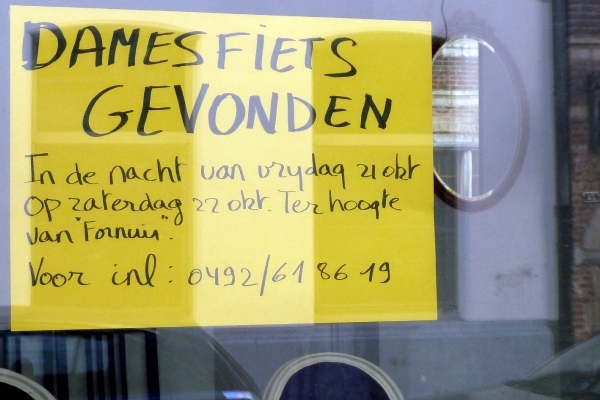 DAMESFIETS
GEVONDEN
In de nacht van vrydag 21 okt
op zaterdag 22 okt. Ter hoogte
van "Fornuis".
Voor inl: 0492/61 86 19